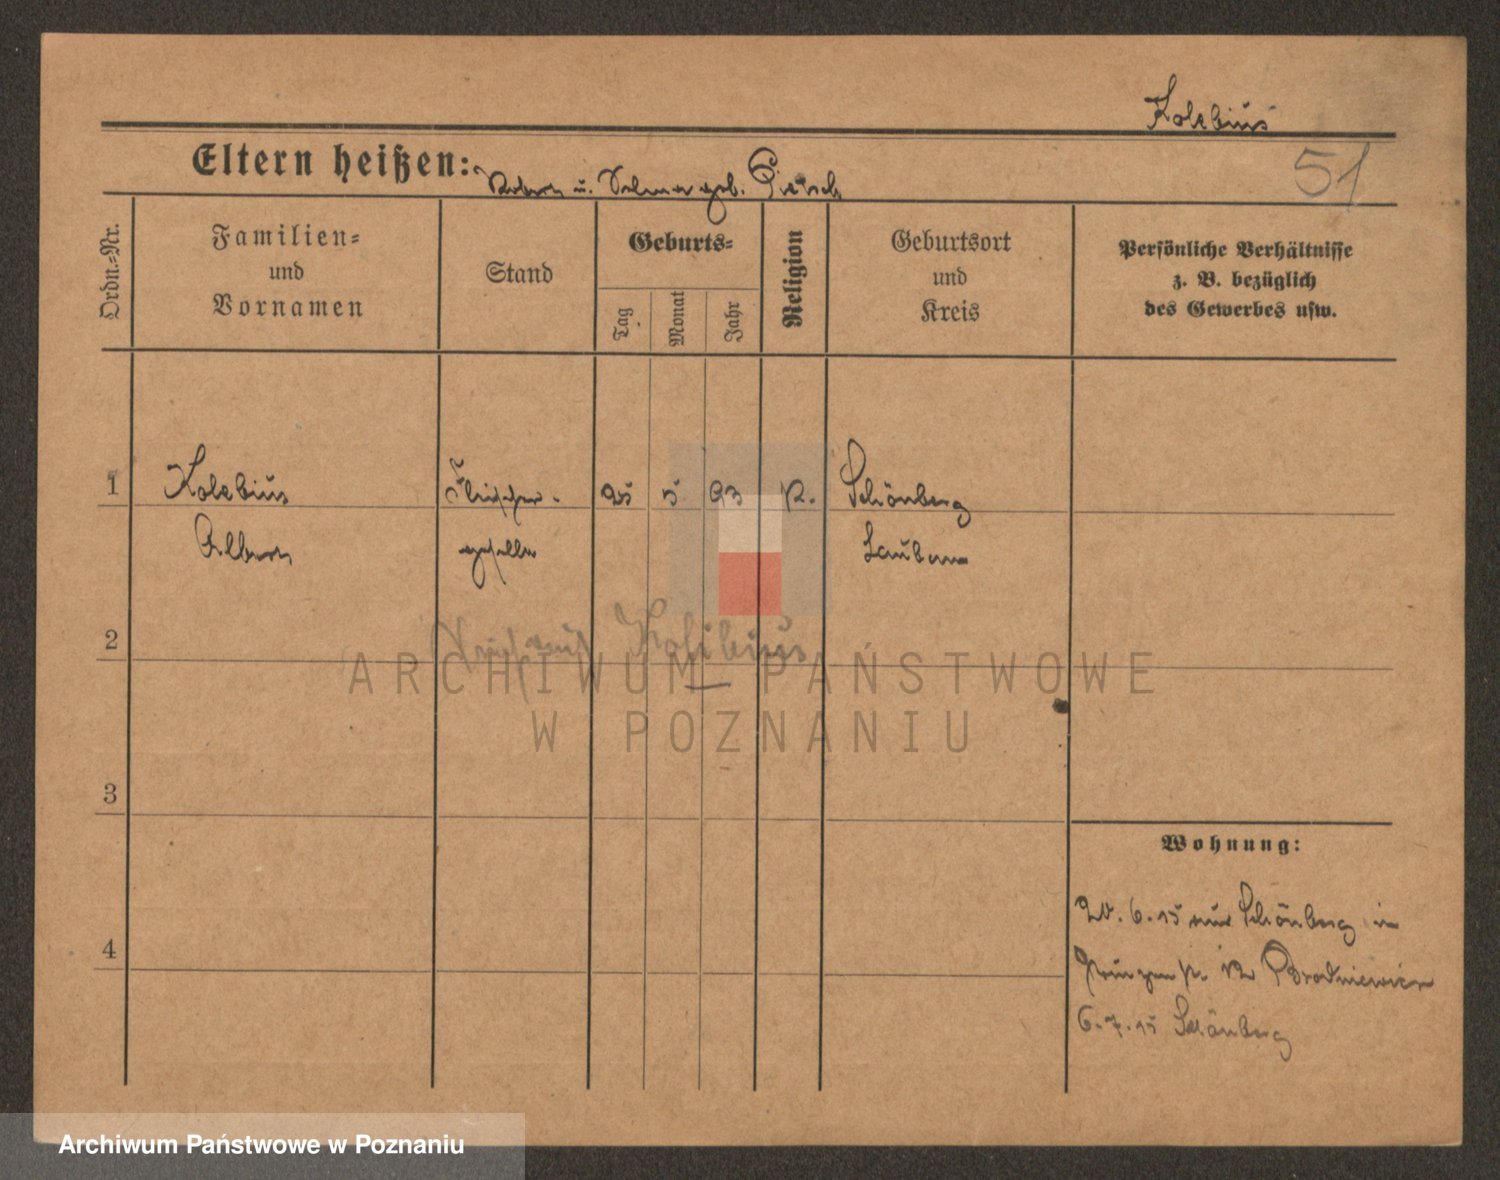 Kolebius
51
Eltern heißen: Robert u. Selma geb. Pietsch
Ordn.-Nr.
Familien-
und
Vornamen
Stand
Geburts-
Tag
Monat
Jahr
Religion
Geburtsort
und
Kreis
Persönliche Verhältnisse
z. B. bezüglich
des Gewerbes usw.
1
Kolebius
Fleischer-
25
5
93
Schönberg
Albert
geselle
Lauban
2
Kolibius
3
4
Wohnung:
20. 6. 15 aus Schönberg in
6. 7. 15 Schönberg
ARCHIWUM PAŃSTWOWE
W POZNANIU
Archiwum Państwowe w Poznaniu